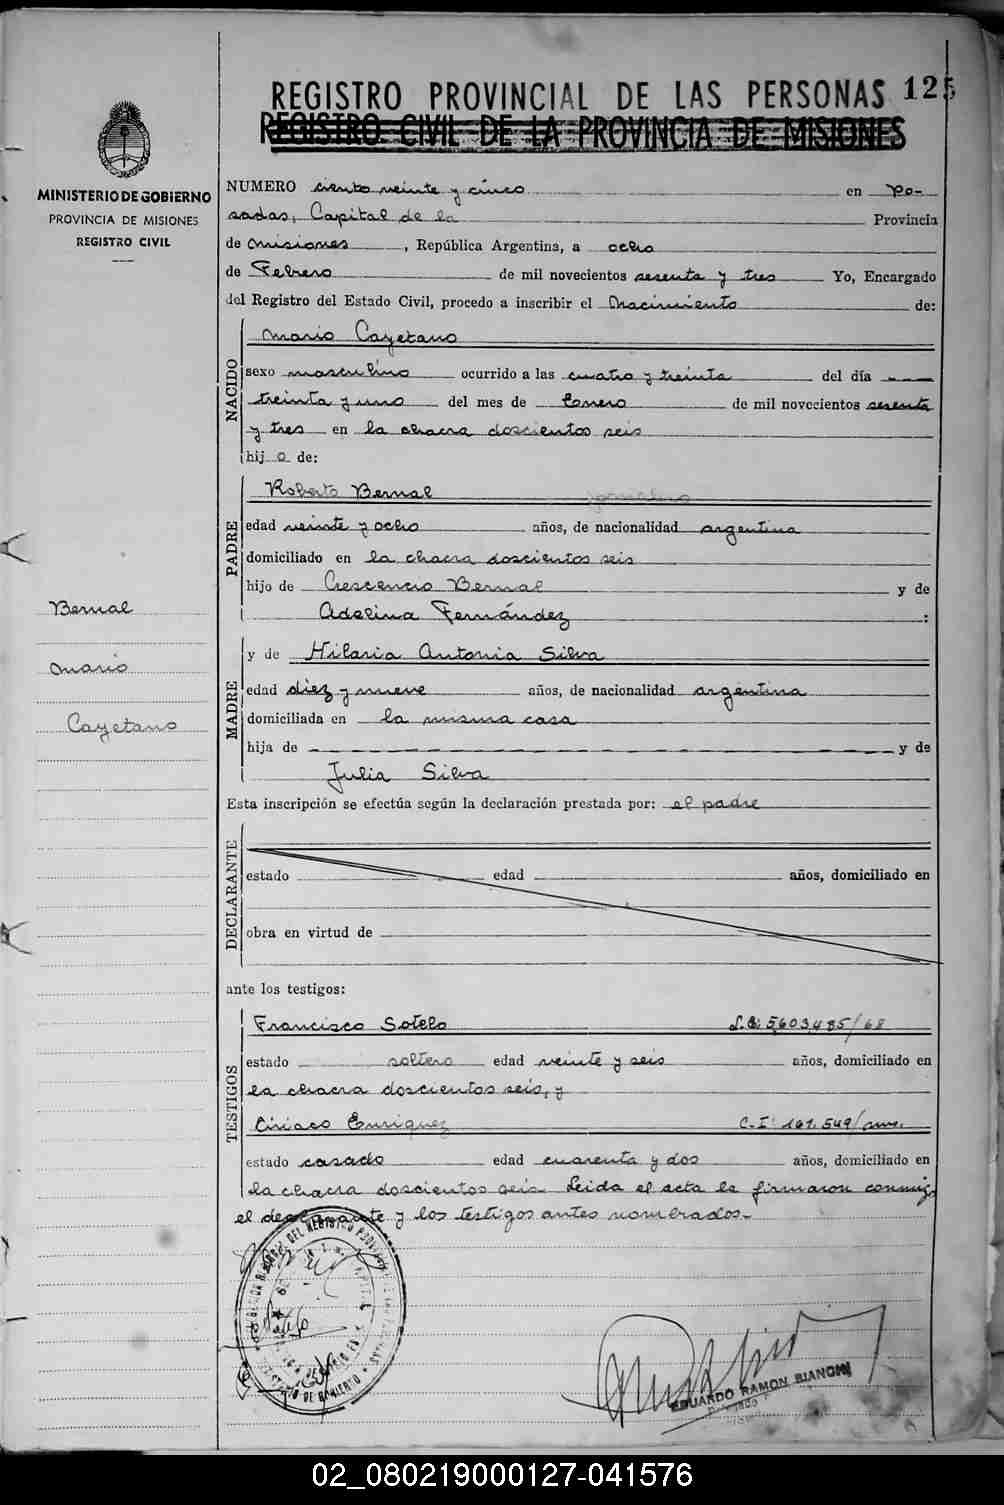 REGISTRO PROVINCIAL DE LAS PERSONAS 125
REGISTRO CIVIL DE LA PROVINCIA DE MISIONES
MINISTERIO DE GOBIERNO
PROVINCIA DE MISIONES
REGISTRO CIVIL
NUMERO ciento veinte y cinco en Po-
sadas, Capital de la Provincia
de Misiones, República Argentina, a ocho
de Febrero de mil novecientos sesenta y tres Yo, Encargado
del Registro del Estado Civil, procedo a inscribir el Nacimiento de:
NACIDO
Mario Cayetano
sexo masculino ocurrido a las cuatro y treinta del día
treinta y uno del mes de Enero de mil novecientos sesenta
y tres en la chacra doscientos seis
hijo de:
PADRE
Roberto Bernal jornalero
edad veinte y ocho años, de nacionalidad argentina
domiciliado en la chacra doscientos seis
hijo de Crescencio Bernal y de
Adelina Fernández :
Bernal
Mario
Cayetano
MADRE
y de Hilaria Antonia Silva
edad diez y nueve años, de nacionalidad argentina
domiciliada en la misma casa
hija de y de
Julia Silva
Esta inscripción se efectúa según la declaración prestada por: el padre
DECLARANTE
estado edad años, domiciliado en
obra en virtud de
ante los testigos:
TESTIGOS
Francisco Sotelo L.E: 5,603,485/68
estado soltero edad veinte y seis años, domiciliado en
la chacra doscientos seis, y
Ciriaco Enriquez C.I: 161.549/mns.
estado casado edad cuarenta y dos años, domiciliado en
la chacra doscientos seis. Leida el acta la firmaron conmigo
el declarante y los testigos antes nombrados.-
EDUARDO RAMON BIANCHI
02_080219000127-041576